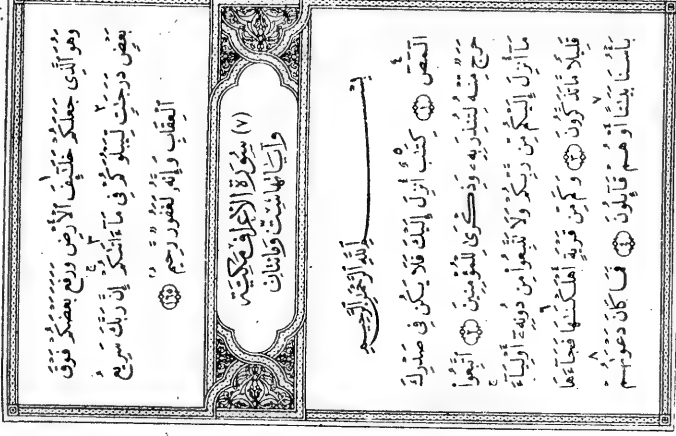 وَهُوَ ٱلَّذِى جَعَلَكُمْ خَلَٰٓئِفَ ٱلْأَرْضِ وَرَفَعَ بَعْضَكُمْ فَوْقَ
بَعْضٍ دَرَجَٰتٍ لِّيَبْلُوَكُمْ فِى مَآ ءَاتَىٰكُمْ إِنَّ رَبَّكَ سَرِيعُ
ٱلْعِقَابِ وَإِنَّهُۥ لَغَفُورٌ رَّحِيمٌ ﴿١٦٥﴾
(٧) سُورَةُ الأَعْرَافِ مَكِّيَّة
وَآيَاتُهَا سِتٌّ وَمِائَتَانِ
بِسْمِ ٱللَّهِ ٱلرَّحْمَٰنِ ٱلرَّحِيمِ
الٓمٓصٓ ﴿١﴾ كِتَٰبٌ أُنزِلَ إِلَيْكَ فَلَا يَكُن فِى صَدْرِكَ
حَرَجٌ مِّنْهُ لِتُنذِرَ بِهِۦ وَذِكْرَىٰ لِلْمُؤْمِنِينَ ﴿٢﴾ ٱتَّبِعُوا۟
مَآ أُنزِلَ إِلَيْكُم مِّن رَّبِّكُمْ وَلَا تَتَّبِعُوا۟ مِن دُونِهِۦٓ أَوْلِيَآءَ
قَلِيلًا مَّا تَذَكَّرُونَ ﴿٣﴾ وَكَم مِّن قَرْيَةٍ أَهْلَكْنَٰهَا فَجَآءَهَا
بَأْسُنَا بَيَٰتًا أَوْ هُمْ قَآئِلُونَ ﴿٤﴾ فَمَا كَانَ دَعْوَىٰهُمْ